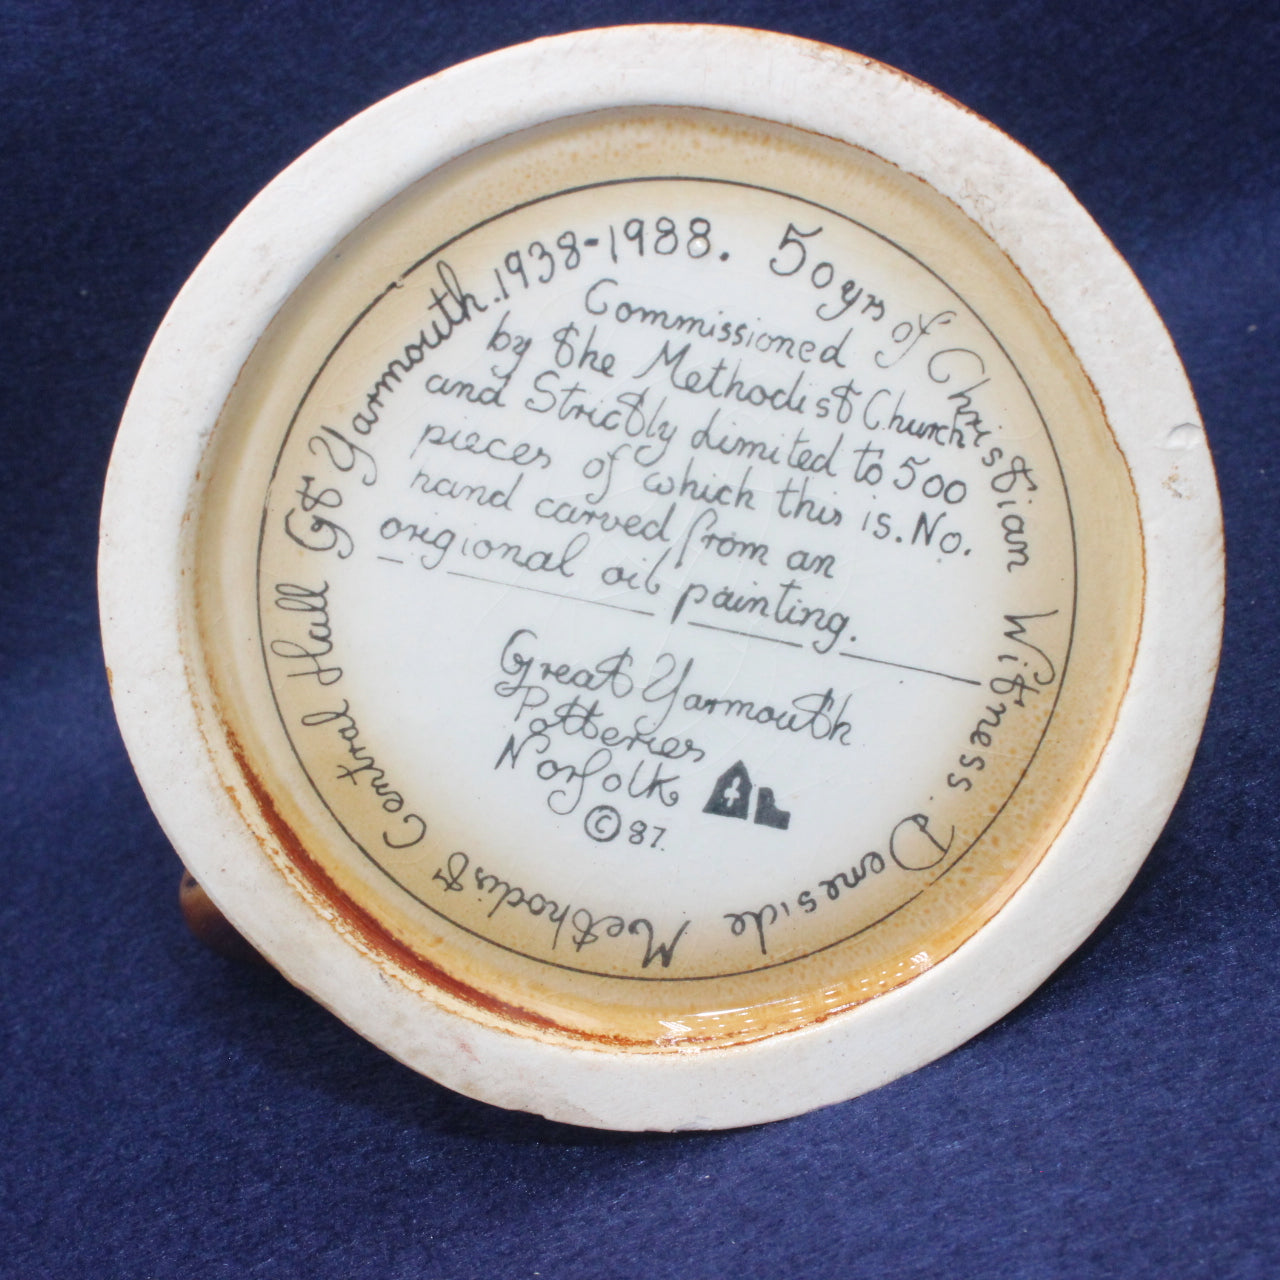 50yrs of Christian Witness. Deneside Methodist Central Hall Gt Yarmouth. 1938-1988.
Commissioned
by the Methodist Church
and Strictly Limited to 500
pieces of which this is. No.
hand carved from an
origional oil painting.
Great Yarmouth
Potteries
Norfolk
© 87.